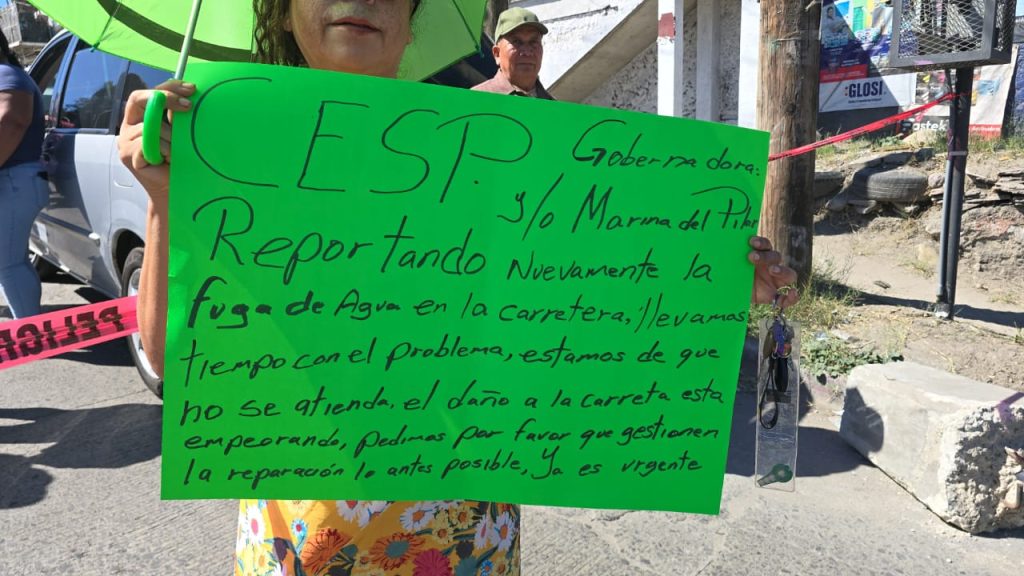 CESP. Gobernadora:
y/o Marina del Pilar
Reportando Nuevamente la
fuga de Agua en la carretera, llevamos
tiempo con el problema, estamos de que
no se atienda, el daño a la carreta esta
empeorando, pedimos por favor que gestionen
la reparación lo antes posible, Ya es urgente
PELIGR
GLOSI